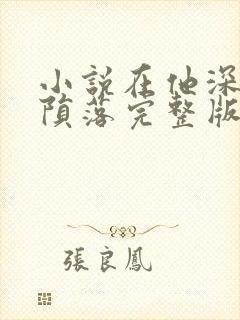 小説在他深
隕落完整版
張良鳳